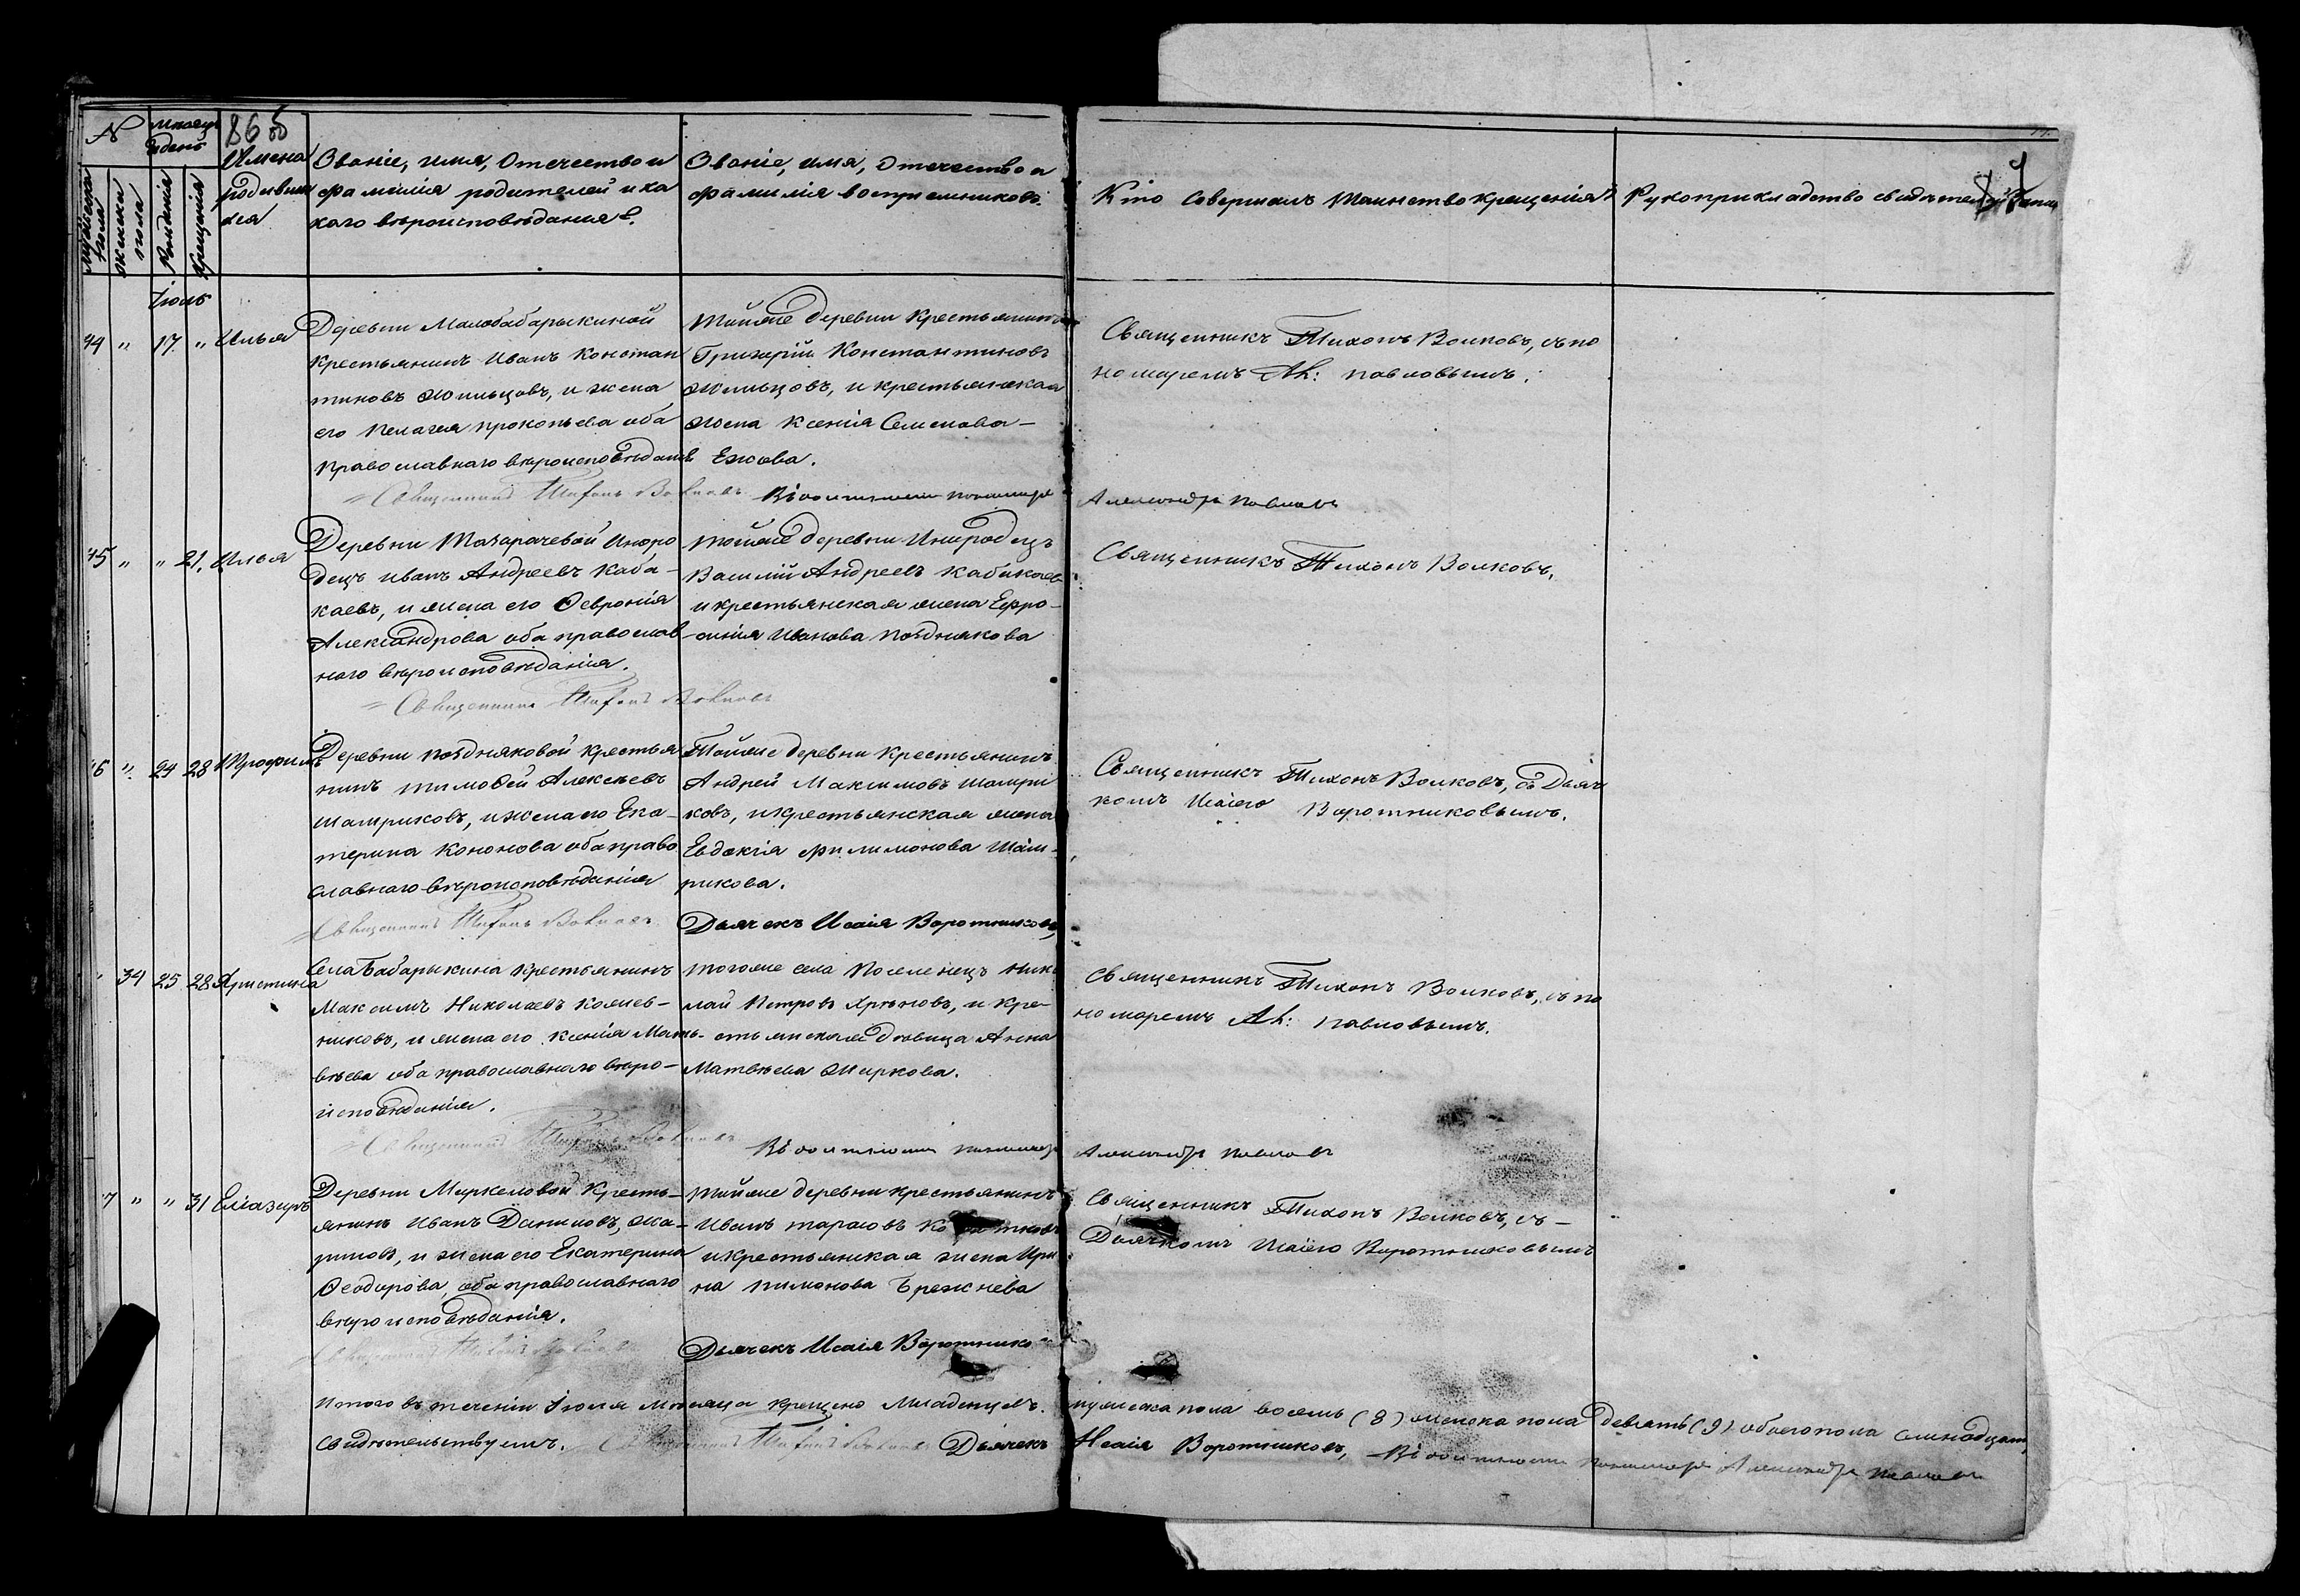 № Мѣсяцъ и день 86 об
Мужеска пола
Женска пола
Рожденія
Крещенія
Имена родившихся
Званіе, имя, Отечество и
фамилія родителей и ка
каго вѣроисповѣданія.
Званіе, имя, Отечество и
фамилія воспріемниковъ.
Кто Совершалъ Таинство крещенія
Рукоприкладство свидѣтелей
Іюль
44 " 17. " Илья
Деревни Малобабарыкиной
крестьянинъ Иванъ Констан
тиновъ Жильцовъ, и жена
его Пелагея Прокопьева оба
православнаго вѣроисповѣданія
Тойже деревни крестьянинъ
Григорій Константиновъ
Жильцовъ, и крестьянская
жена Ксенія Семенова
Ежова.
Священникъ Тихонъ Волковъ, съ по
номаремъ Ал: Павловымъ.
Священникъ Тихонъ Волковъ
Александръ Павловъ
45 " " 21. Илья
Деревни Тазарачевой Иноро
децъ Иванъ Андреевъ Каба-
каевъ, и жена его Ѳевронія
Александрова оба православ-
наго вѣроисповѣданія.
Тойже деревни Инородецъ
Василій Андреевъ Кабакаевъ
и крестьянская жена Ефро-
синія Иванова Позднякова
Священникъ Тихонъ Волковъ.
Священникъ Тихонъ Волковъ
46 " 24 28 Трофимъ
Деревни Поздняковой крестья
нинъ Тимоѳей Алексѣевъ
Шатриковъ, и жена его Ека-
терина Кононова оба право
славнаго вѣроисповѣданія
Тойже деревни крестьянинъ
Андрей Максимовъ Шатри
ковъ, и крестьянская жена
Евдокія Филимонова Шат-
рикова.
Священникъ Тихонъ Волковъ, съ Дьяч
комъ Исаіею Воротниковымъ.
Священникъ Тихонъ Волковъ
Дьячекъ Исаія Воротниковъ
" 34 25 28 Христина
Села Бабарыкина крестьянинъ
Максимъ Николаевъ
никовъ, и жена его Ксенія Мат-
вѣева оба православнаго вѣро-
исповѣданія.
Тогоже села Поселенецъ Нико
лай Петровъ Хрѣновъ, и кре-
стьянская дѣвица Анна
Матвѣева Жиркова.
Священникъ Тихонъ Волковъ, съ по
номаремъ Ал: Павловымъ.
Священникъ Тихонъ Волковъ
Александръ Павловъ
7 " " 31 Елiазаръ
Деревни Маркеловой Кресть-
янинъ Иванъ Даниловъ,
и жена его Екатерина
Ѳеодорова, оба православнаго
вѣроисповѣданія.
Тойже деревни крестьянинъ
Иванъ Тарасовъ
и крестьянская жена Ири
на Пимонова Брежнева
Священникъ Тихонъ Волковъ, съ
Дьячкомъ Исаіею Воротниковымъ
Священникъ Тихонъ Волковъ
Дьячекъ Исаія Воротнико
Итого въ теченіи Іюля мѣсяца крещено Младенцевъ. мужеска пола восемь (8) женска пола девять (9) обоего пола семнадцать
свидѣтельствуемъ. Священникъ Тихонъ Волковъ Дьячекъ Исаія Воротниковъ, Александръ Павловъ